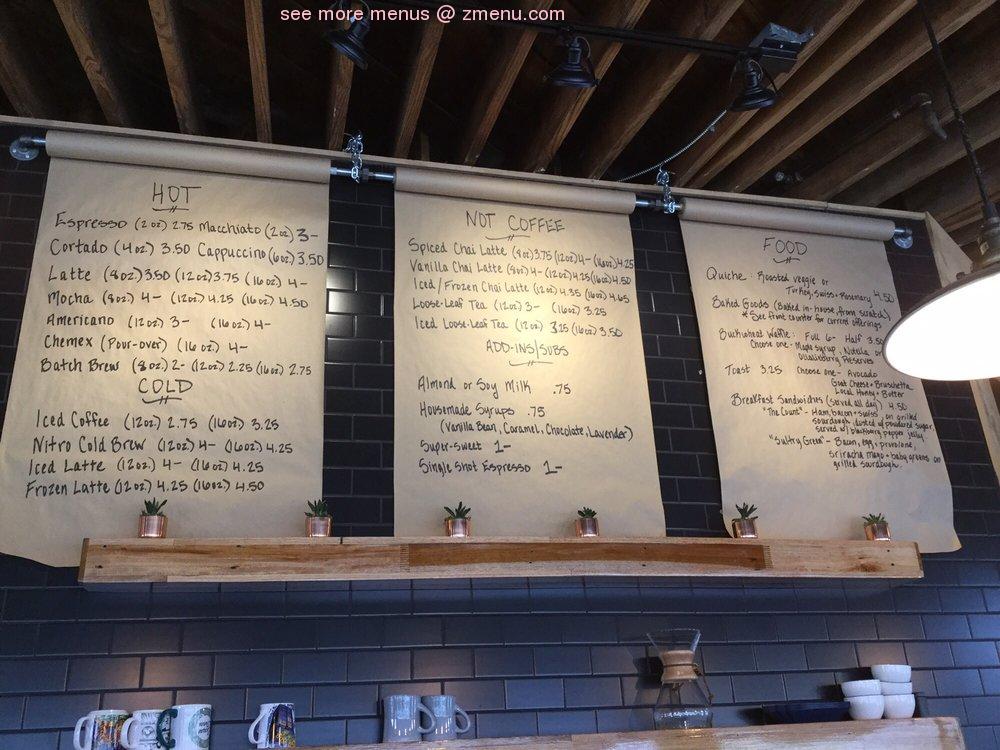 see more menus @ zmenu.com
HOT
Espresso (2oz) 2.75 Macchiato (2oz) 3-
Cortado (4oz.) 3.50 Cappuccino (6oz) 3.50
Latte (8oz) 3.50 (12oz) 3.75 (16oz) 4-
Mocha (8oz) 4- (12oz) 4.25 (16oz) 4.50
Americano (12oz) 3- (16oz.) 4-
Chemex (Pour-over) (16oz) 4-
Batch Brew (8oz.) 2- (12oz.) 2.25 (16oz) 2.75
COLD
Iced Coffee (12oz) 2.75 (16oz) 3.25
Nitro Cold Brew (12oz) 4- (16oz) 4.25
Iced Latte (12oz.) 4- (16oz) 4.25
Frozen Latte (12oz.) 4.25 (16oz) 4.50
NOT COFFEE
Spiced Chai Latte (8oz) 3.75 (12oz) 4- (16oz) 4.25
Vanilla Chai Latte (8oz) 4- (12oz) 4.25 (16oz) 4.50
Iced/Frozen Chai Latte (12oz) 4.35 (16oz) 4.65
Loose-Leaf Tea (12oz) 3- (16oz) 3.25
Iced Loose-Leaf Tea (12oz) 3.25 (16oz) 3.50
ADD-INS/SUBS
Almond or Soy Milk .75
Housemade Syrups .75
(Vanilla Bean, Caramel, Chocolate, Lavender)
Super-sweet 1-
Single Shot Espresso 1-
FOOD
Quiche: Roasted veggie or
Turkey, Swiss + Rosemary 4.50
Baked Goods (Baked in-house, from scratch)
*See front counter for current offerings
Buckwheat Waffle: Full 6- Half 3.50
Choose one- Maple syrup, Nutella or
Blueberry Preserves
Toast 3.25 Choose one- Avocado
Goat Cheese + Bruschetta
Local Honey + Butter
Breakfast Sandwiches (served all day) 4.50
"The Count"- Ham, bacon + swiss, on grilled
sourdough, dusted w/ powdered sugar
served w/ blackberry pepper jelly
"Sultry Green"- Bacon, egg + provolone,
sriracha mayo + baby greens on
grilled sourdough.